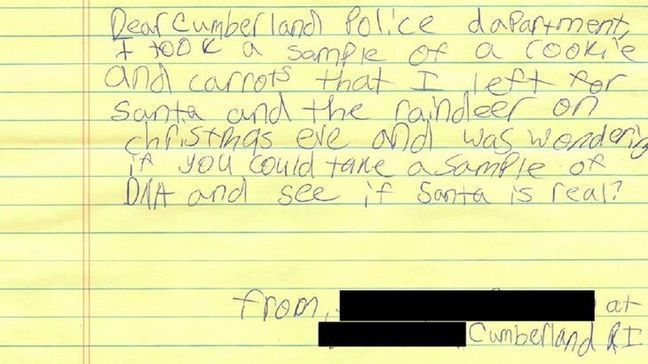 Dear Cumberland Police dapartment,
I took a sample of a cookie
and carrots that I left for
Santa and the raindeer on
christmas eve and was wondering
if you could take a sample of
DNA and see if Santa is real?
from, at
Cumberland RI